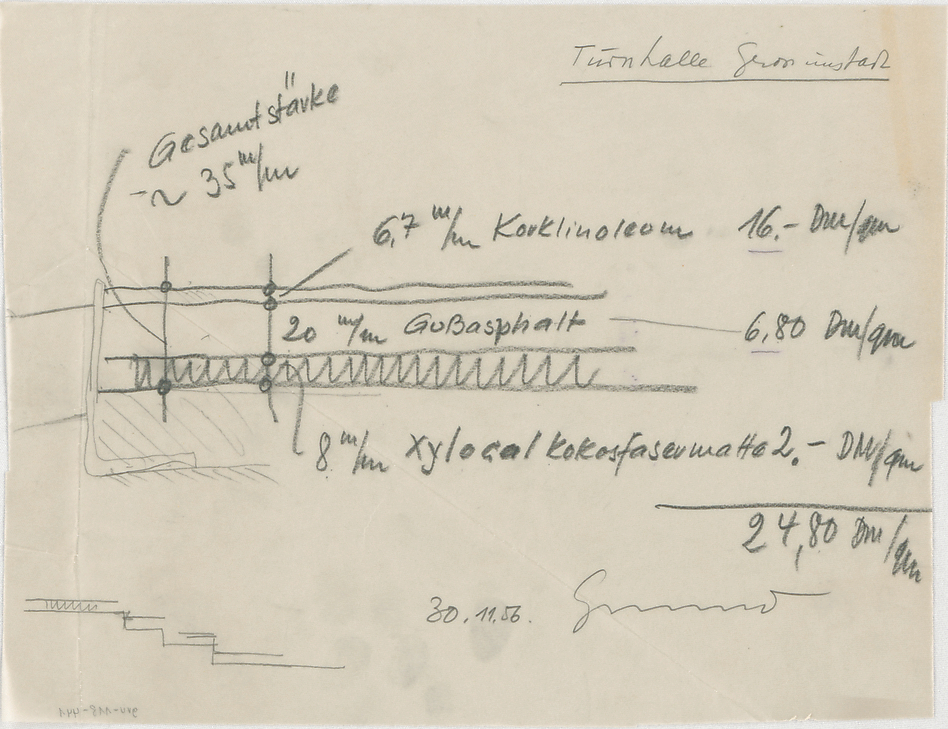 Turnhalle
Gesamtstärke
~ 35 m/m
6,7 m/m Korklinoleum 16.- DM/qm
20 m/m Gußasphalt 6,80 DM/qm
8 m/m Xylocal kokosfasermatte 2.- DM/qm
24,80 DM/qm
30.11.56.